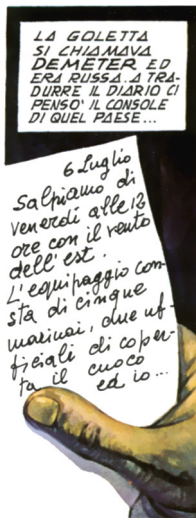 LA GOLETTA
SI CHIAMAVA
DEMETER ED
ERA RUSSA. A TRA-
DURRE IL DIARIO CI
PENSO' IL CONSOLE
DI QUEL PAESE...
6 Luglio
Salpiamo di
venerdi alle 12
ore con il vento
dell'est.
L'equipaggio con-
sta di cinque
marinai, due uf-
ficiali di coper-
ta il cuoco
ed io...